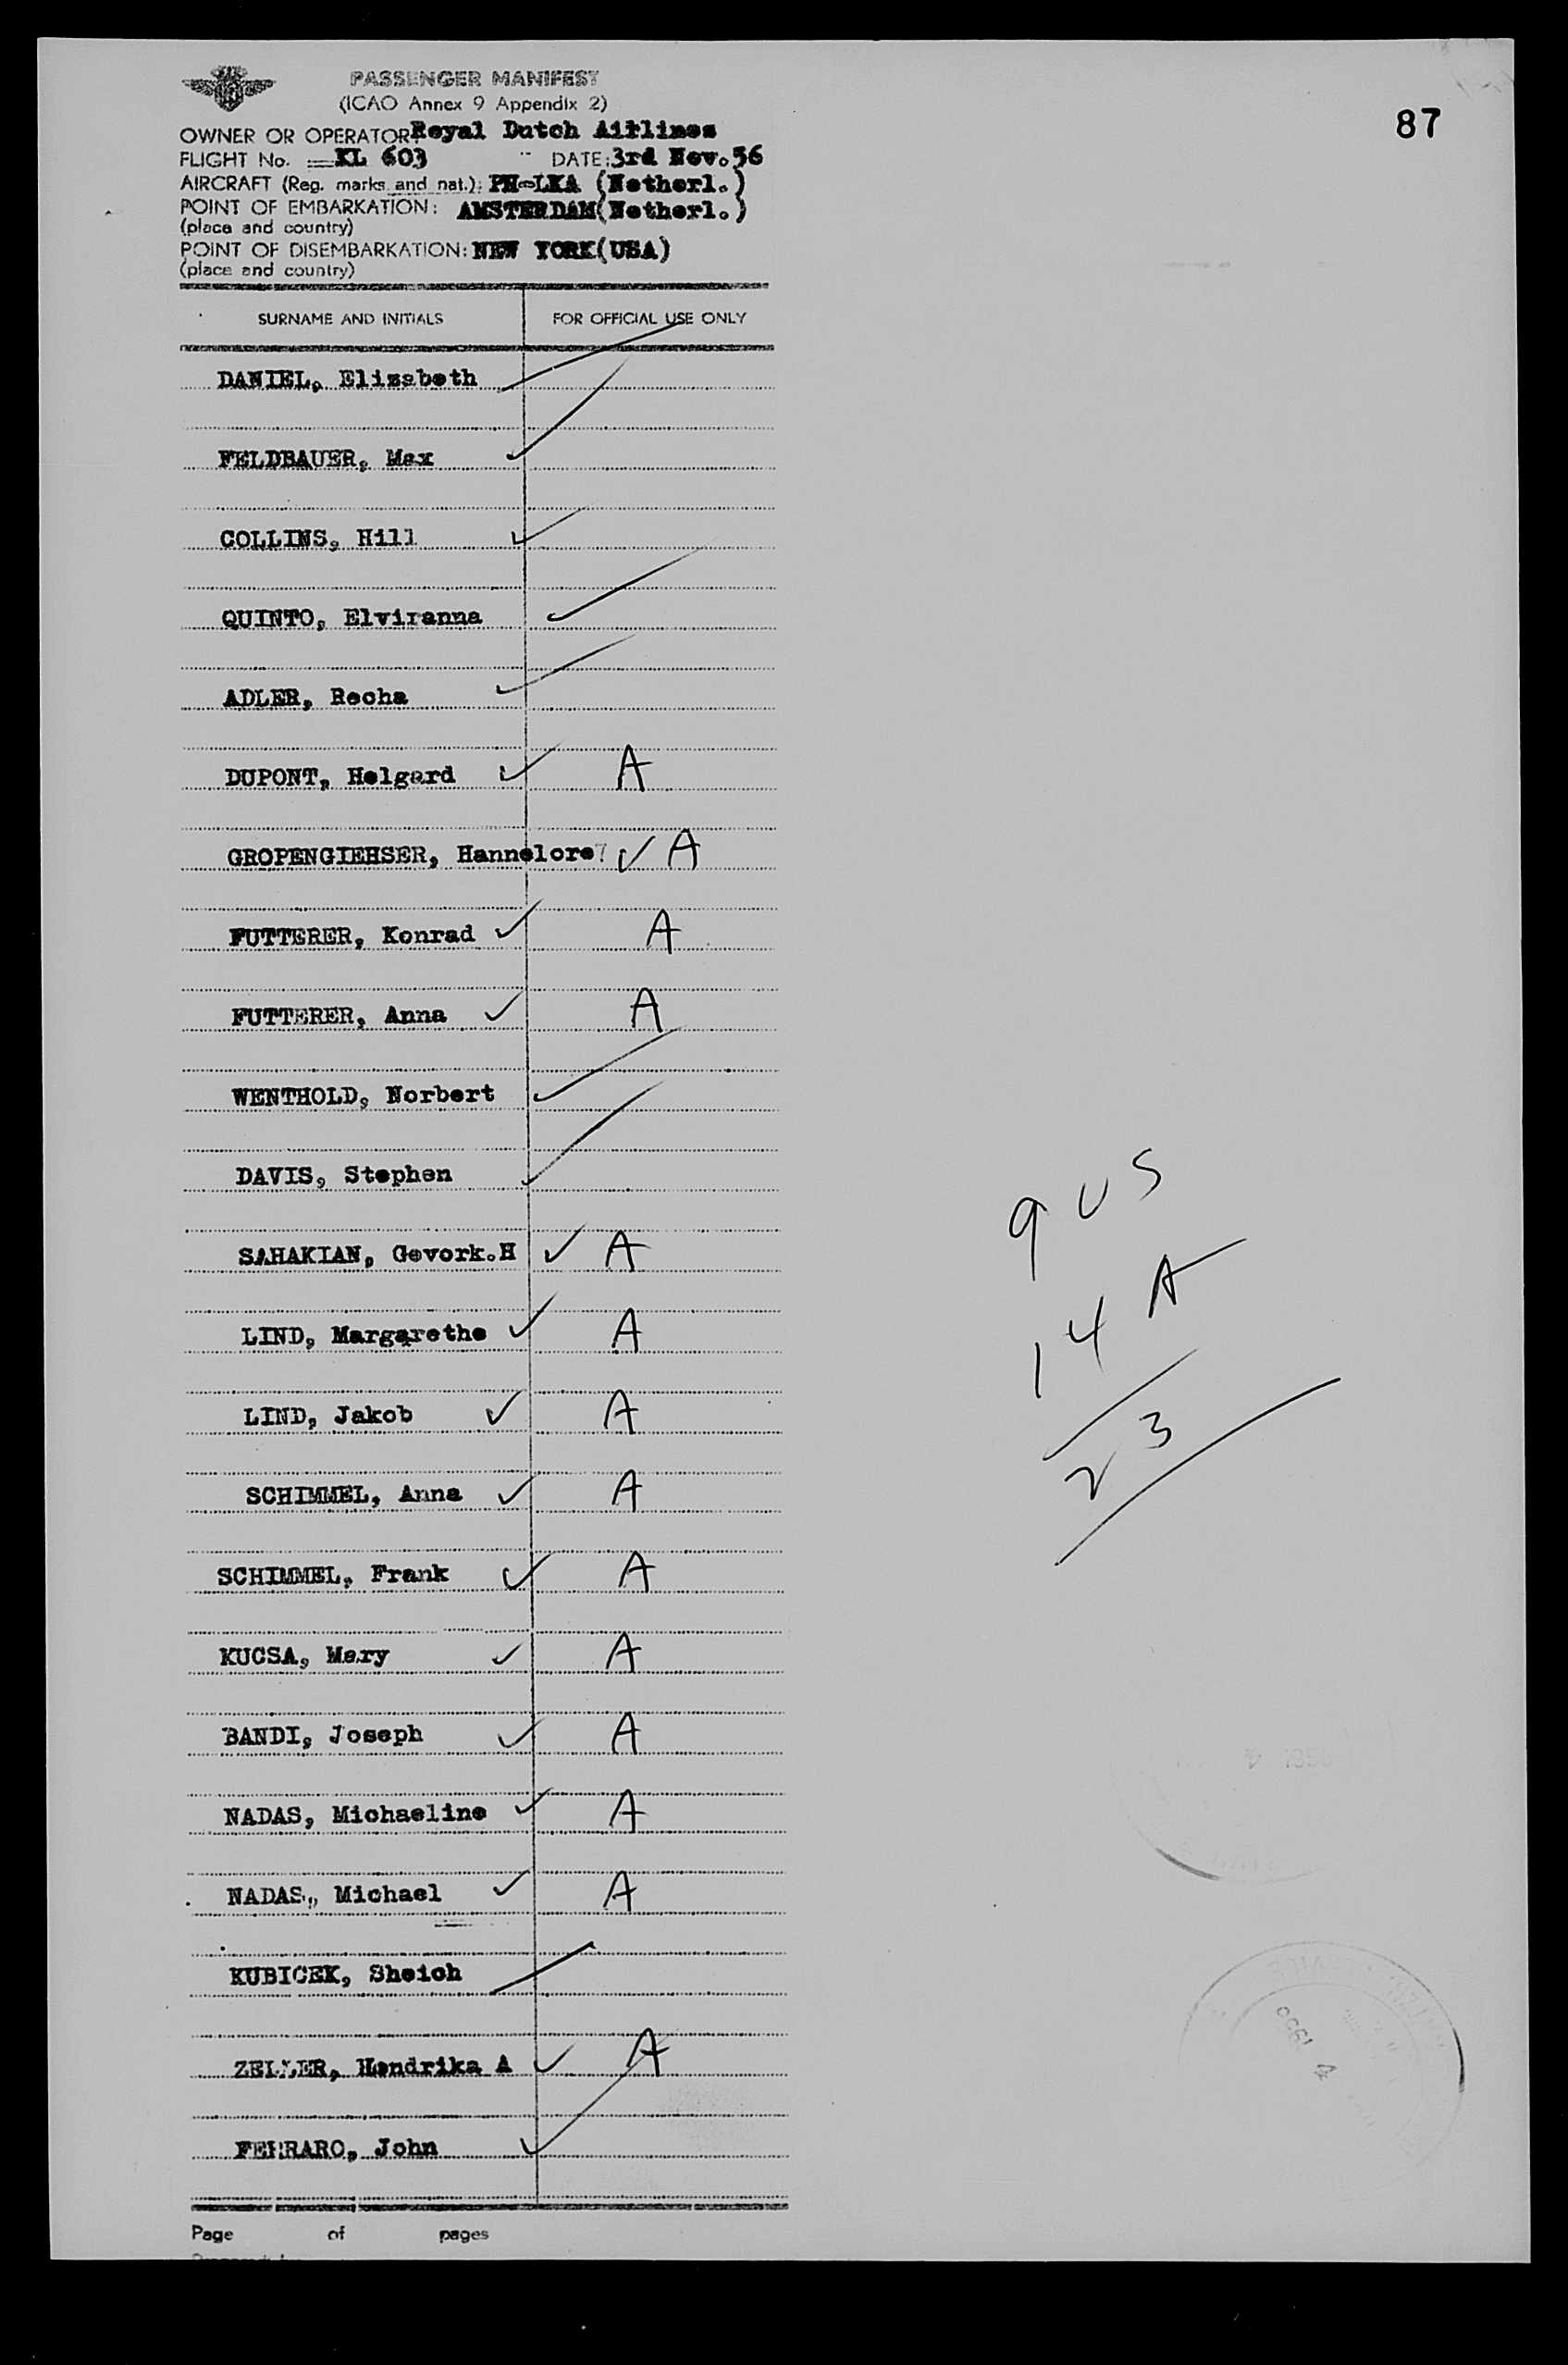 PASSENGER MANIFEST
(ICAO Annex 9 Appendix 2)
87
OWNER OR OPERATOR: Royal Dutch Airlines
FLIGHT No. KL 603 DATE: 3rd Nov. 56
AIRCRAFT (Reg. marks and nat.): PH-LKA (Netherl.)
POINT OF EMBARKATION: AMSTERDAM (Netherl.)
(place and country)
POINT OF DISEMBARKATION: NEW YORK (USA)
(place and country)
SURNAME AND INITIALS FOR OFFICIAL USE ONLY
DANIEL, Elizabeth
FELDBAUER, Max
COLLINS, Hill
QUINTO, Elviranna
ADLER, Recha
DUPONT, Helgard ✓ A
GROPENGIEHSER, Hannelore ✓ A
FUTTERER, Konrad ✓ A
FUTTERER, Anna ✓ A
WENTHOLD, Norbert
DAVIS, Stephen
SAHAKIAN, Gevork.H ✓ A
LIND, Margarethe ✓ A
LIND, Jakob ✓ A
SCHIMMEL, Anna ✓ A
SCHIMMEL, Frank ✓ A
KUCSA, Mary ✓ A
BANDI, Joseph ✓ A
NADAS, Michaeline ✓ A
NADAS, Michael ✓ A
KUBICEK, Sheich
ZELLER, Hendrika A ✓ A
FERRARO, John
9 US
14 A
23
Page of pages